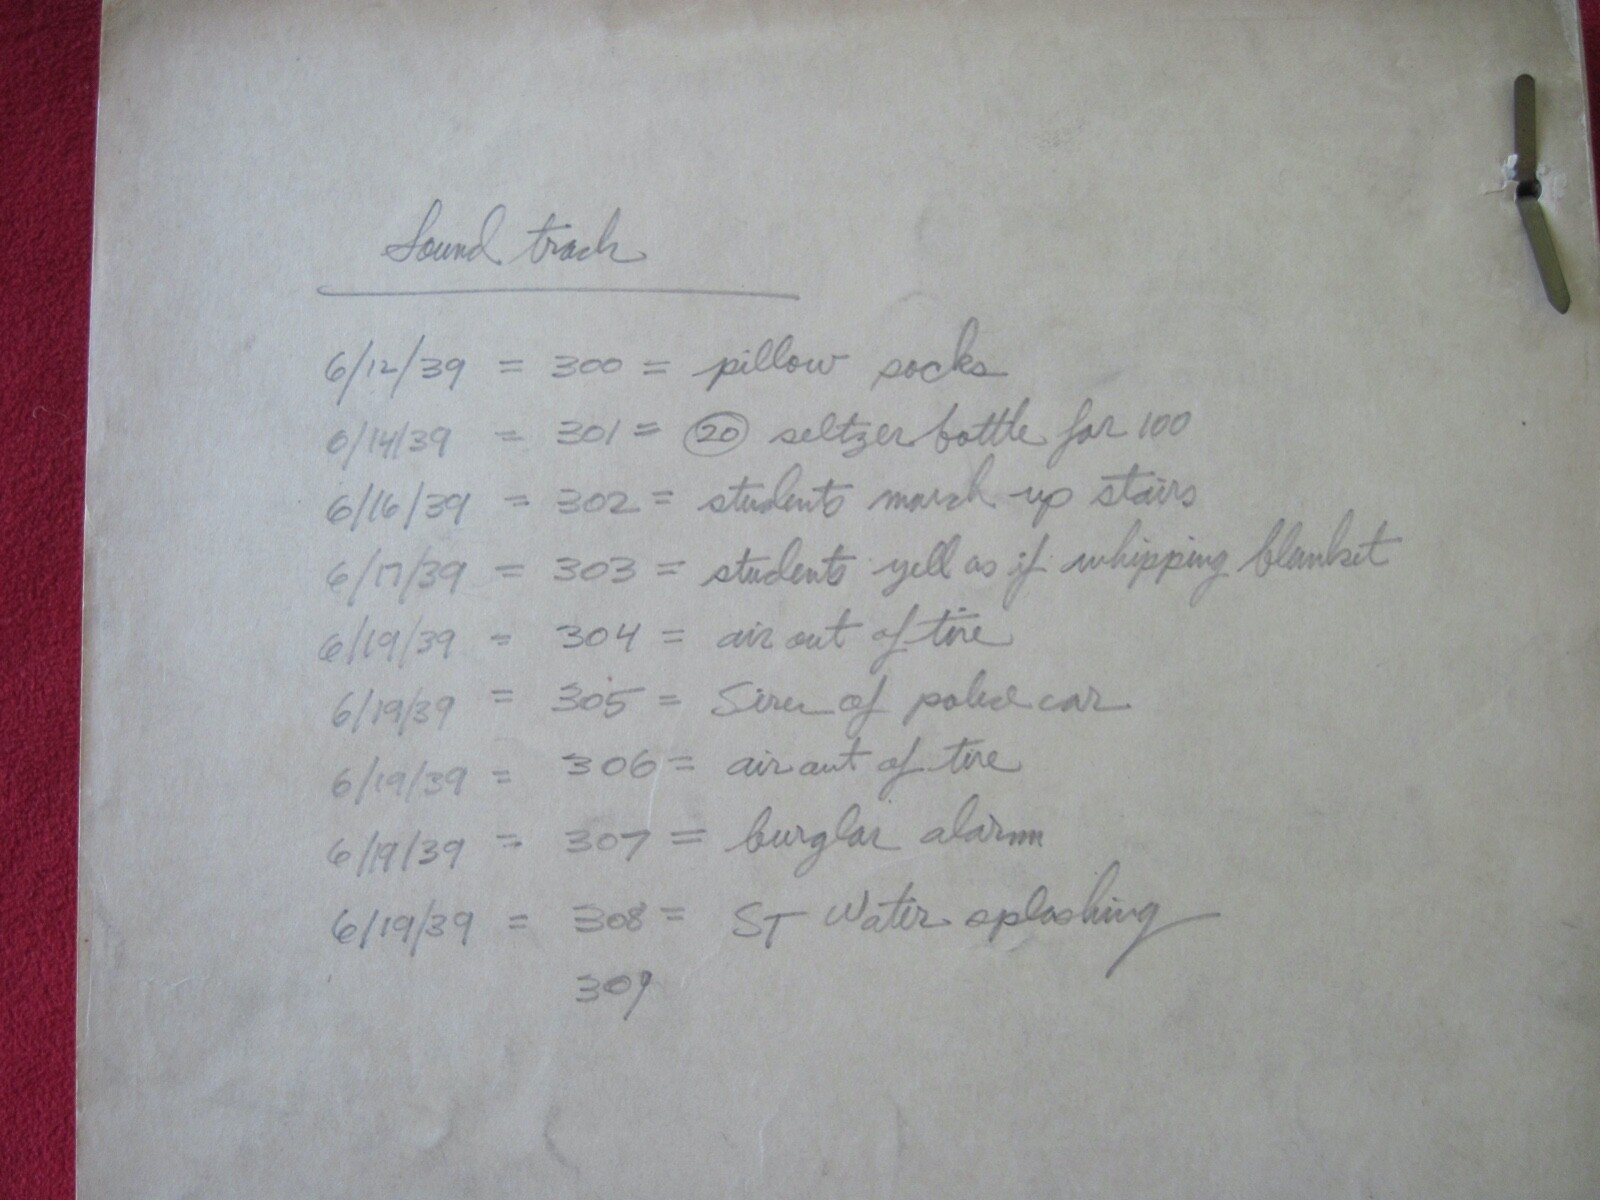 Sound track
6/12/39 = 300 = pillow socks
6/14/39 = 301 = 20 seltzer bottle for 100
6/16/39 = 302 = students march up stairs
6/17/39 = 303 = students yell as if whipping blanket
6/19/39 = 304 = air out of tire
6/19/39 = 305 = Siren of police car
6/19/39 = 306 = air out of tire
6/19/39 = 307 = burglar alarm
6/19/39 = 308 = ST Water splashing
309